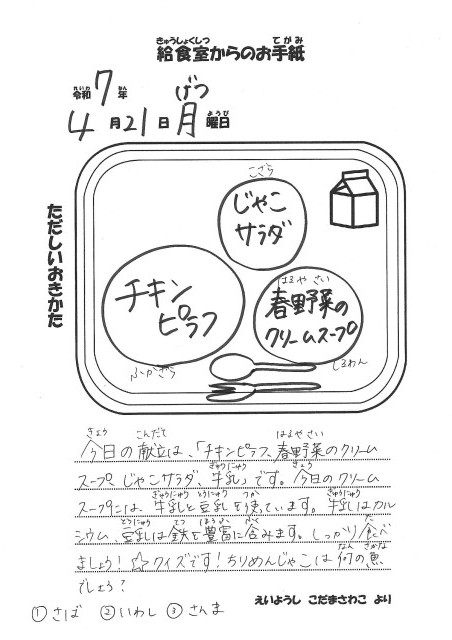 給食室からのお手紙
きゅうしょくしつ てがみ
令和7年
れいわ ねん
4月21日月曜日
げつ ようび
ただしいおきかた
こざら
じゃこ
サラダ
チキン
ピラフ
ふかざら
はるやさい
春野菜の
クリームスープ
しるわん
きょう こんだて はるやさい
今日の献立は、「チキンピラフ、春野菜のクリーム
ぎゅうにゅう きょう
スープ、じゃこサラダ、牛乳」です。今日のクリーム
ぎゅうにゅう とうにゅう つか ぎゅうにゅう
スープには、牛乳と豆乳を使っています。牛乳はカル
とうにゅう てつ ほうふ ふく た
シウム、豆乳は鉄を豊富に含みます。しっかり食べ
なん さかな
ましょう!☆クイズです!ちりめんじゃこは何の魚
でしょう?
①さば ②いわし ③さんま
えいようし こだまさわこ より